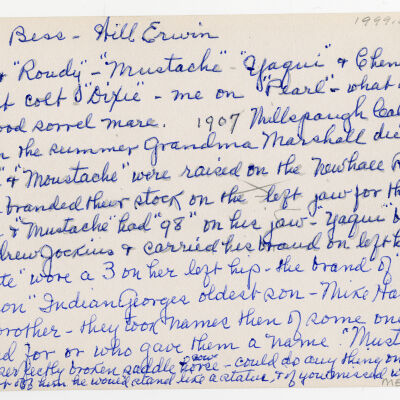 1999.
Bess - Hill Erwin
& "Rowdy" - "Mustache" - "Yaqui" & Chen
t colt "Dixie" - me on "Pearl" - what a
ood sorrel mare. 1907 Millspaugh
n the summer Grandma Marshall die
" & "Moustache" were raised on the Newhall
branded their stock on the left jaw for th
" & "Mustache" had "98" on his jaw - "Yaqui"
drew Jockins & carried his brand on left h
te" wore a 3 on her left hip - the brand of "
on" Indian Georges oldest son - Mike Ha
rother - they took names then of some one
d for or who gave them a name. "Must
perfectly broken saddle cow horse - could do any thing on
t off him he would stand like a statue, & if you missed w
ME